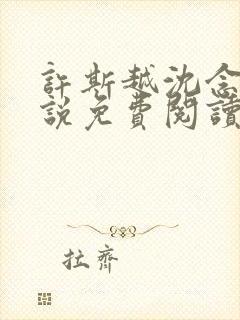 許斯越沈念
說免費閱讀
拉齊